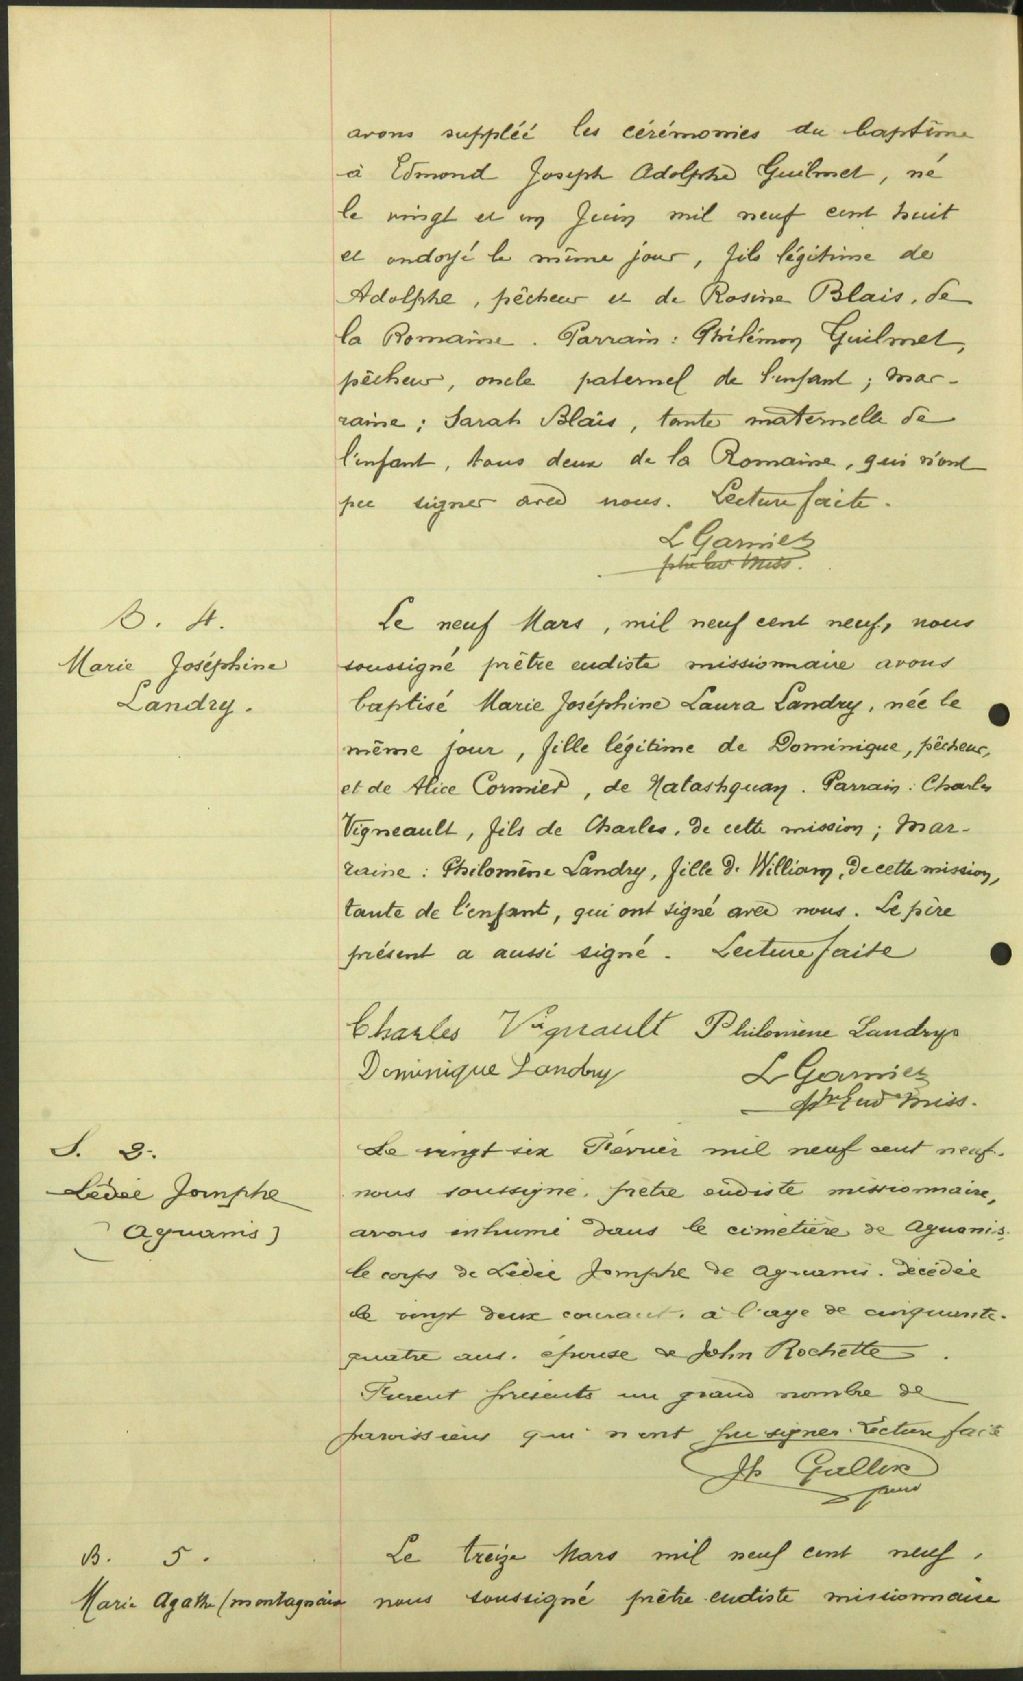 avons suppléé les cérémonies du baptême
à Edmond Joseph Adolphe Guilmet, né
le vingt et un Juin mil neuf cent huit
et ondoyé le même jour, fils légitime de
Adolphe, pêcheur et de Rosine Blais, de
la Romaine. Parrain : Philémon Guilmet,
pêcheur, oncle paternel de l'enfant ; mar-
raine : Sarah Blais, tante maternelle de
l'enfant, tous deux de la Romaine, qui n'ont
pu signer avec nous. Lecture faite.
L Garnier
ptre Eud Miss.
B. 4.
Marie Joséphine
Landry.
Le neuf Mars, mil neuf cent neuf, nous
soussigné prêtre eudiste missionnaire avons
baptisé Marie Joséphine Laura Landry, née le
même jour, fille légitime de Dominique, pêcheur,
et de Alice Cormier, de Natashquan. Parrain : Charles
Vigneault, fils de Charles, de cette mission ; Mar-
raine : Philomène Landry, fille de William, de cette mission,
tante de l'enfant, qui ont signé avec nous. Le père
présent a aussi signé. Lecture faite
Charles Vignault Philomène Landry
Dominique Landry L Garnier
ptre Eud Miss.
S. 2.
Lédée Jomphe
(Aguanis)
Le vingt six Février mil neuf cent neuf.
nous soussigné, prêtre eudiste missionnaire,
avons inhumé dans le cimetière de Aguanis,
le corps de Lédée Jomphe de Aguanis. décédée
le vingt deux courant. à l'age de cinquante-
quatre ans. épouse de John Rochette.
Furent présents un grand nombre de
paroissiens qui n'ont pu signer. Lecture faite
Jh Gallix
B. 5.
Marie Agathe (montagnaise
Le treize Mars mil neuf cent neuf,
nous soussigné prêtre eudiste missionnaire